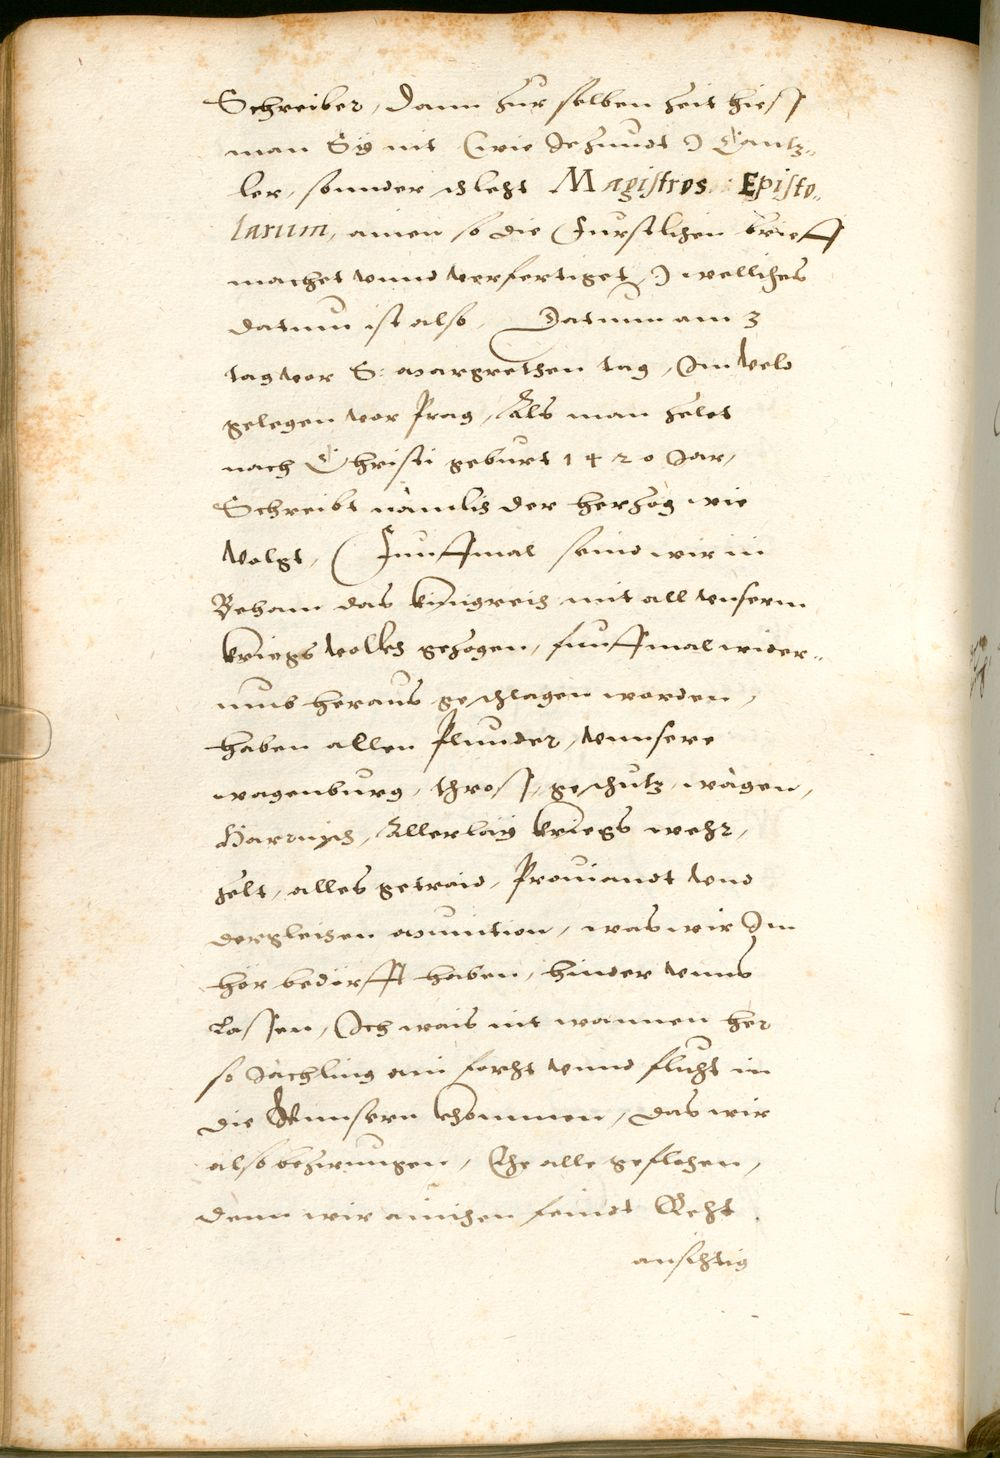 Schreiber, dann zur selben zeit hiess
man Sÿ nit (wie Jezundt) Cantz„
ler, sonnder schlecht Magistros Episto„
larum, ainen so die Fürstlichen brieff
machet vnnd verfertiget) welliches
datum ist also, Datum am 3
tag vor S: Margrethen tag, Im Veld
gelegen vor Prag, Als man zelet
nach Christi geburt 1420 Jar,
Schreibt nämlich der herzog wie
volgt, (Funffmal seind wir in
Beham das künigreich mit all vnserm
kriegs volkh gezogen, funffmal wider„
umb heraus geschlagen worden,
haben allen Plunder, vnnsere
wagenburg, thross, geschutz, wägen,
Harnisch, Allerlaÿ kriegs wehr,
zelt, alles getraid, Prouiandt vnd
dergleichen Munition, was wir Im
hör bedörfft haben, hinder vnns
Lassen, Ich wais nit wannen her
so Jächling ain forcht vnnd flucht in
die vnnsern khommen, das wir
also bezwungen, Ehe alle geflohen,
denn wir ainichen feindt Recht
ansichtig